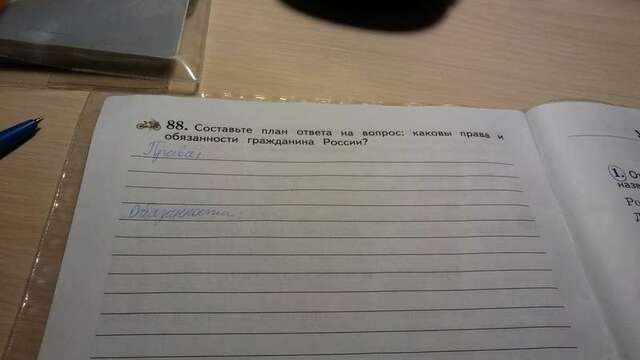 88. Составьте план ответа на вопрос: каковы права и
обязанности гражданина России?
Права:
Обязанности:
1. О
назв
Ро